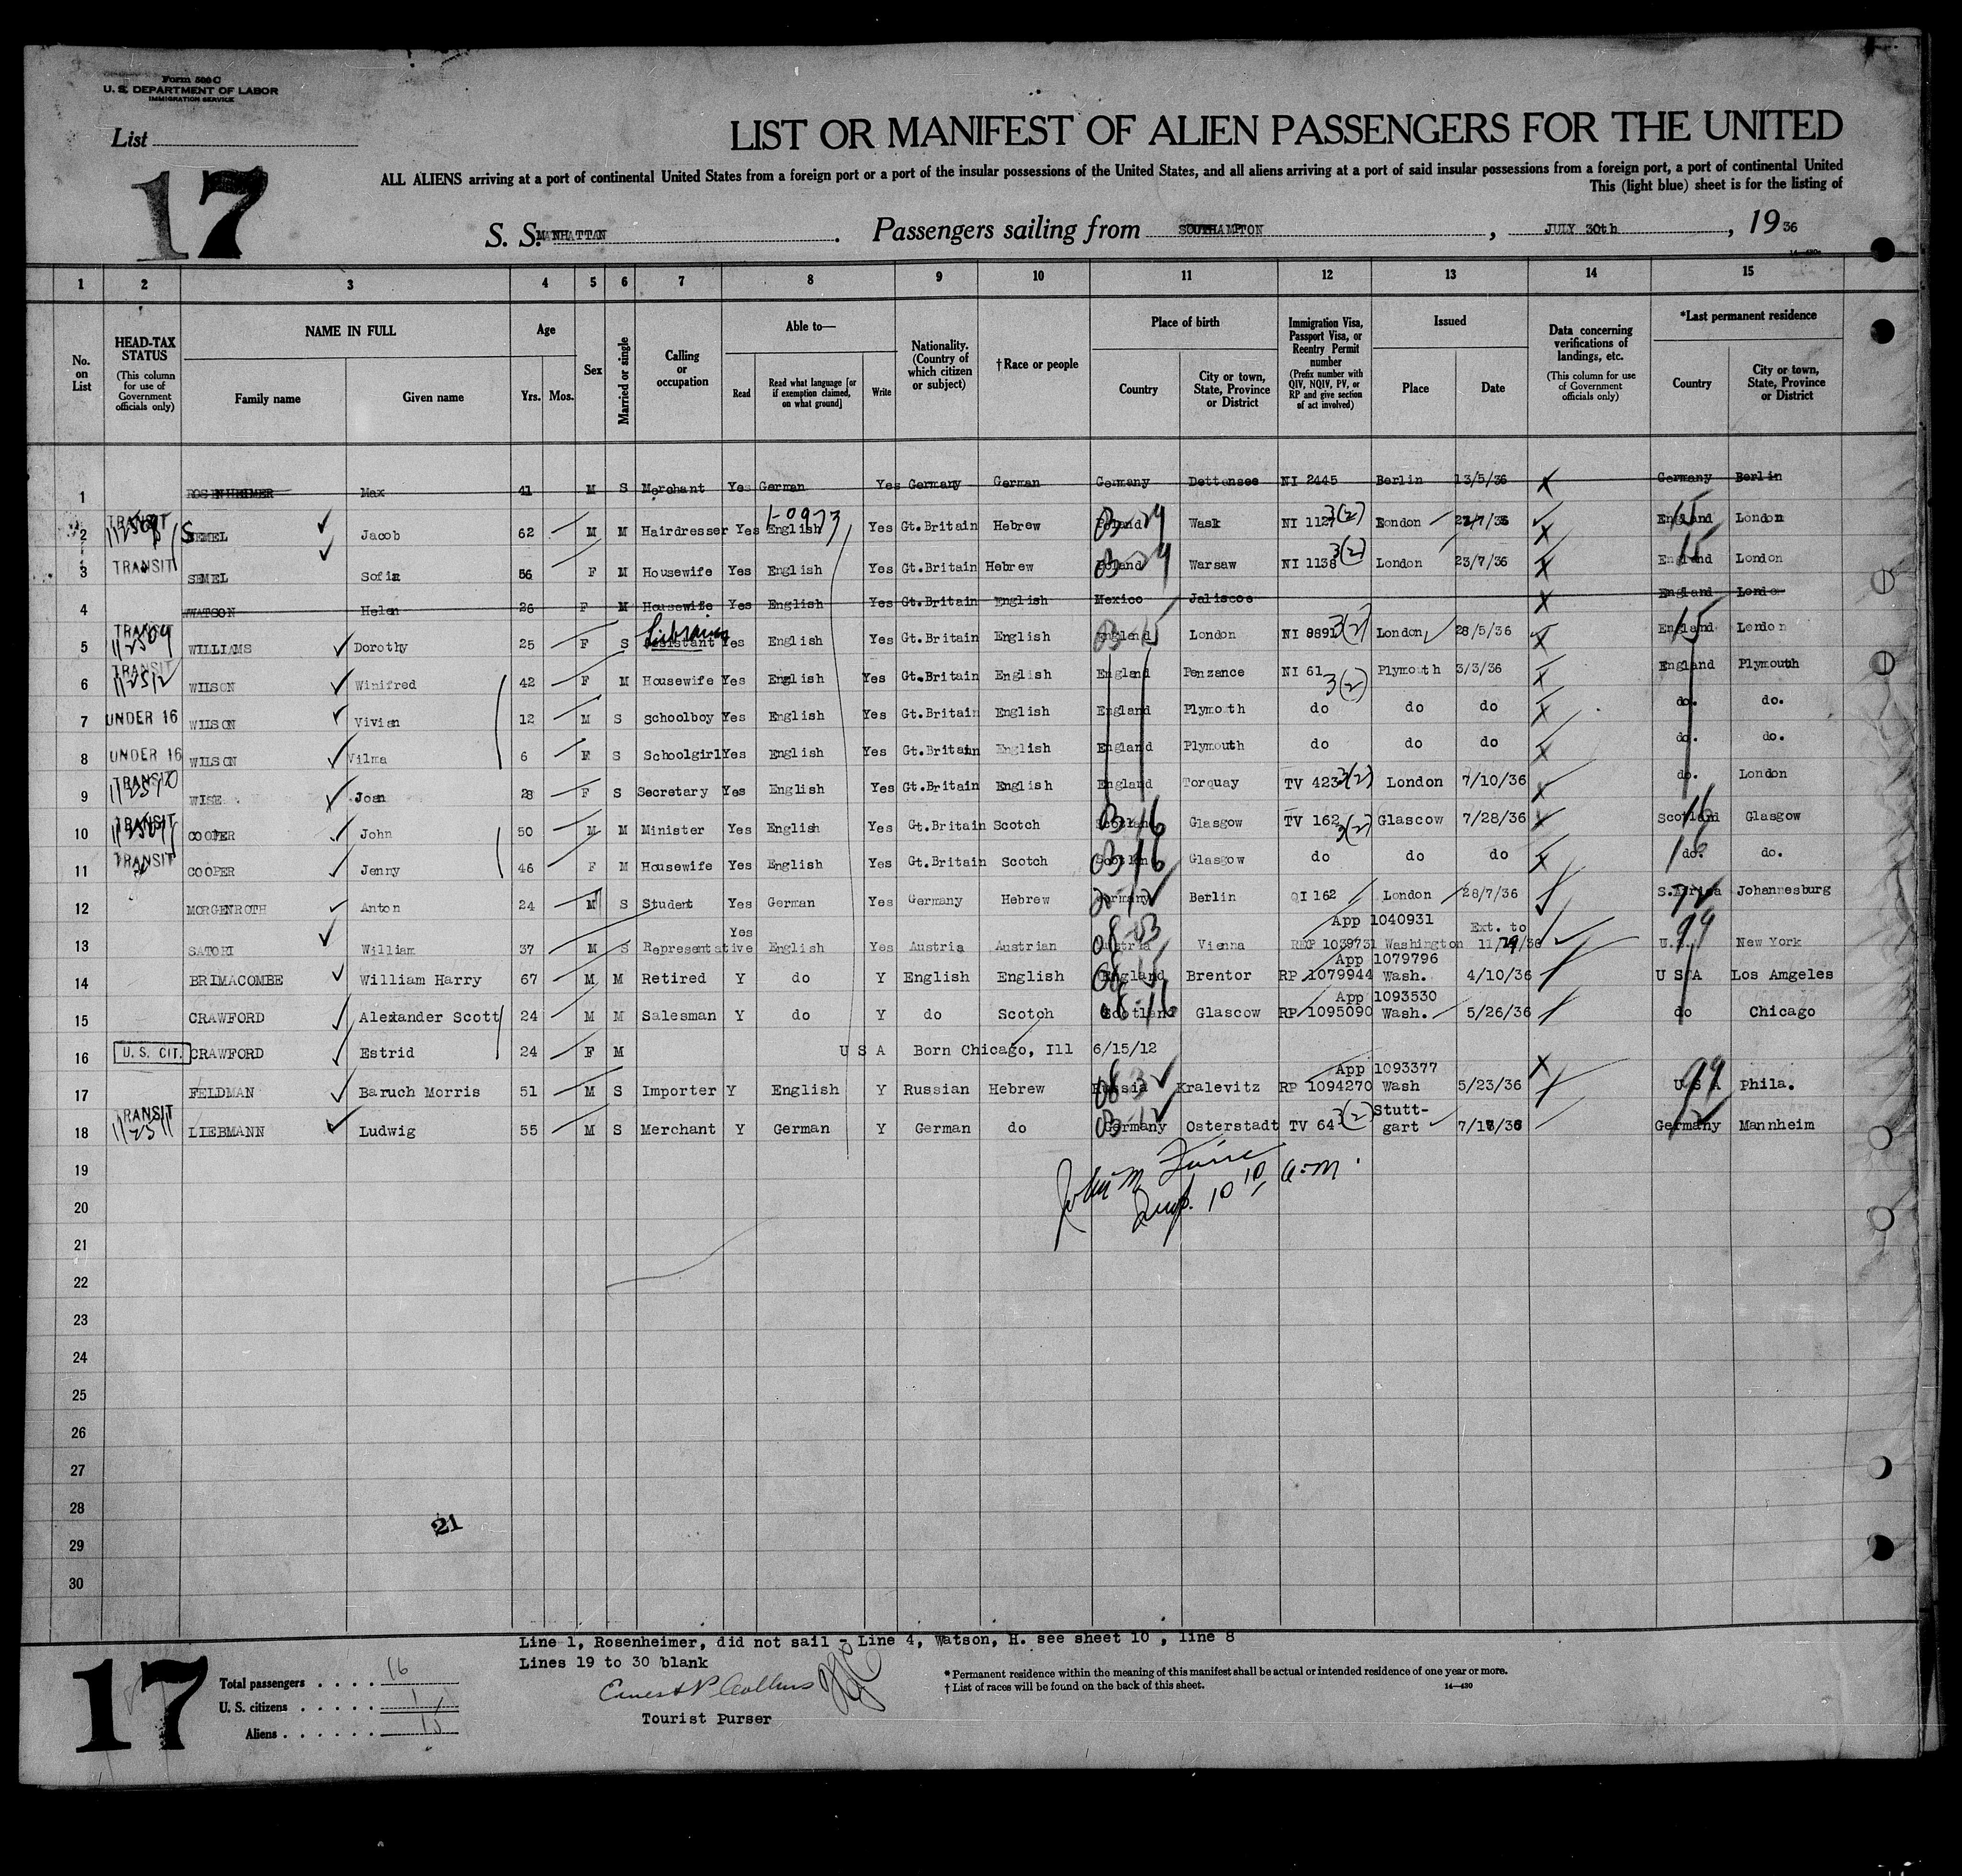 Form 500 C
U. S. DEPARTMENT OF LABOR
IMMIGRATION SERVICE
List
17
LIST OR MANIFEST OF ALIEN PASSENGERS FOR THE UNITED
ALL ALIENS arriving at a port of continental United States from a foreign port or a port of the insular possessions of the United States, and all aliens arriving at a port of said insular possessions from a foreign port, a port of continental United
This (light blue) sheet is for the listing of
S. S. MANHATTAN. Passengers sailing from SOUTHAMPTON, JULY 30th, 1936
1 2 3 4 5 6 7 8 9 10 11 12 13 14 15
No. on List
HEAD-TAX STATUS (This column for use of Government officials only)
NAME IN FULL Family name Given name
Age Yrs. Mos.
Sex
Married or single
Calling or occupation
Able to— Read Read what language [or if exemption claimed, on what ground] Write
Nationality. (Country of which citizen or subject)
†Race or people
Place of birth Country City or town, State, Province or District
Immigration Visa, Passport Visa, or Reentry Permit number (Prefix number with QIV, NQIV, PV, or RP and give section of act involved)
Issued Place Date
Data concerning verifications of landings, etc. (This column for use of Government officials only)
*Last permanent residence Country City or town, State, Province or District
1 ROSENHEIMER Max 41 M S Merchant Yes German Yes Germany German Germany Dettensee NI 2445 Berlin 13/5/36 Germany Berlin
1-0973
2 TRANSIT SEMEL Jacob 62 M M Hairdresser Yes English Yes Gt.Britain Hebrew Poland Wask NI 1127 3(2) London England London
3 TRANSIT SEMEL Sofia 56 F M Housewife Yes English Yes Gt.Britain Hebrew Poland Warsaw NI 1138 3(2) London 23/7/36 England London
4 WATSON Helen 26 F M Housewife Yes English Yes Gt.Britain English Mexico Jalisco England London
5 TRANSIT 112509 WILLIAMS Dorothy 25 F S Assistant Yes English Yes Gt.Britain English England London NI 9891 3(2) London 28/5/36 England London
6 TRANSIT 112512 WILSON Winifred 42 F M Housewife Yes English Yes Gt.Britain English England Penzance NI 61 3(2) Plymouth 3/3/36 England Plymouth
7 UNDER 16 WILSON Vivian 12 M S Schoolboy Yes English Yes Gt.Britain English England Plymouth do do do do. do.
8 UNDER 16 WILSON Vilma 6 F S Schoolgirl Yes English Yes Gt.Britain English England Plymouth do do do do. do.
9 TRANSIT 112510 WISE Joan 28 F S Secretary Yes English Yes Gt.Britain English England Torquay TV 423 3(2) London 7/10/36 do. London
10 TRANSIT COOPER John 50 M M Minister Yes English Yes Gt.Britain Scotch Scotland Glasgow TV 162 3(2) Glascow 7/28/36 Scotland Glasgow
11 TRANSIT COOPER Jenny 46 F M Housewife Yes English Yes Gt.Britain Scotch Scotland Glasgow do do do do. do.
12 MORGENROTH Anton 24 M S Student Yes German Yes Germany Hebrew Germany Berlin QI 162 London 28/7/36 S.Africa Johannesburg
App 1040931 Ext. to
13 SATORI William 37 M S Representative Yes English Yes Austria Austrian Austria Vienna Washington U.S.A. New York
App 1079796
14 BRIMACOMBE William Harry 67 M M Retired Y do Y English English England Brentor RP 1079944 Wash. 4/10/36 U S A Los Amgeles
App 1093530
15 CRAWFORD Alexander Scott 24 M M Salesman Y do Y do Scotch Scotland Glascow RP 1095090 Wash. 5/26/36 do Chicago
16 U. S. CIT. CRAWFORD Estrid 24 F M U S A Born Chicago, Ill 6/15/12
App 1093377
17 FELDMAN Baruch Morris 51 M S Importer Y English Y Russian Hebrew Russia Kralevitz RP 1094270 Wash 5/23/36 U S A Phila.
18 TRANSIT 112511 LIEBMANN Ludwig 55 M S Merchant Y German Y German do Germany Osterstadt TV 64 3(2) Stutt-gart Germany Mannheim
19
20
21
22
23
24
25
26
27
28
21
29
30
Line 1, Rosenheimer, did not sail - Line 4, Watson, H. see sheet 10 , line 8
Lines 19 to 30 blank
Ernest P Collins
Tourist Purser
17
Total passengers . . . . 16
U. S. citizens . . . . . 1
Aliens . . . . . . 15
* Permanent residence within the meaning of this manifest shall be actual or intended residence of one year or more.
† List of races will be found on the back of this sheet.
14—430